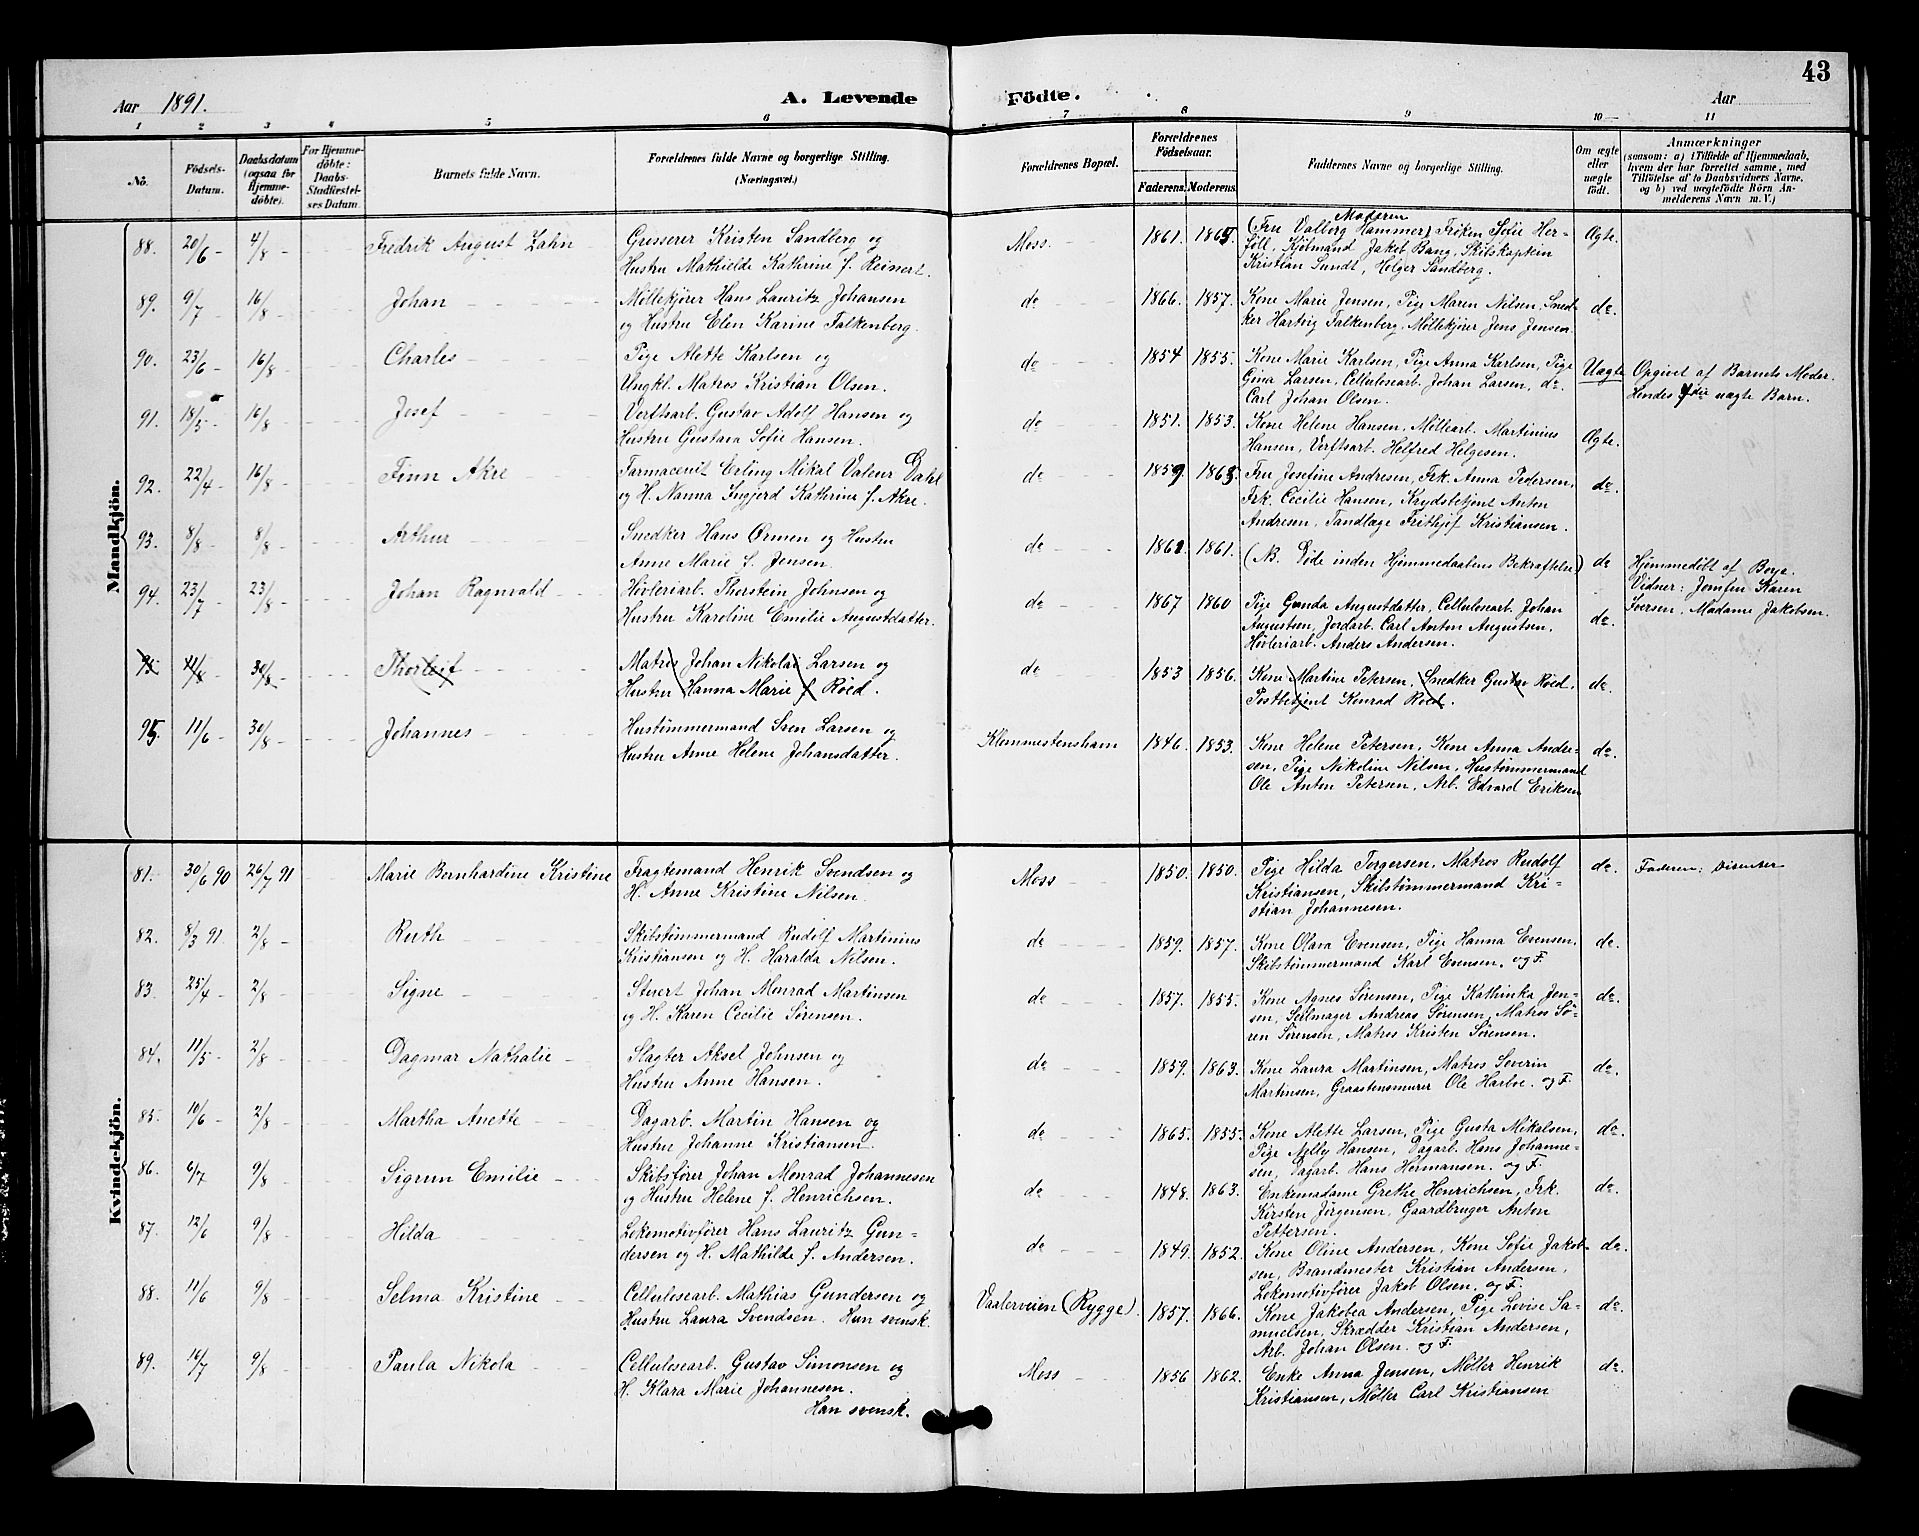 43
Aar 1891. A. Levende Födte. Aar
1 2 3 4 5 6 7 8 9 10 11
No. Födsels-Datum. Daabsdatum (ogsaa for Hjemme-döbte). For Hjemme-döbte: Daabs-Stadfæstel-ses Datum. Barnets fulde Navn. Forældrenes fulde Navne og borgerlige Stilling. (Næringsvei.) Forældrenes Bopæl. Forældrenes Födselsaar. Faderens. Moderens. Faddernes Navne og borgerlige Stilling. Om ægte eller uægte födt. Anmærkninger (saasom: a) i Tilfælde af Hjemmedaab, hvem der har forrettet samme, med Tilföielse af to Daabsvidners Navne, og b) ved uægtefödte Börn An-melderens Navn m. V.)
Mandkjön.
88. 20/6 - 4/8 - Fredrik August Zahn Grosserer Kristen Sandberg og Moss. 1861. 1865. (Fru Valborg Hammer) Moderen Frøken Sofie Her- Ægte.
Hustru Mathilde Kathrine f. Reinert. föll, Kjøbmand Jakob Bang, Skibskaptein
Kristian Sundt, Holger Sandberg.
89. 9/7 16/8 Johan Møllekjører Hans Lauritz Johansen do 1866. 1857. Kone Marie Jensen, Pige Maren Nilsen, Sned- do.
og Hustru Elen Karine Falkenberg. ker Hartvig Falkenberg, Møllekjører Jens Jensen.
90. 23/6 - 16/8 Charles Pige Alette Karlsen og do 1854 1855. Kone Marie Karlsen, Pige Anna Karlsen, Pige Uægte Opgivet af Barnets Moder.
Ungkl. Matros Kristian Olsen. Gina Larsen, Cellulosearb. Johan Larsen, do. Hendes 4de uægte Barn.
Carl Johan Olsen.
91. 18/5 - 16/8 Josef Verftsarb. Gustav Adolf Hansen og do 1851. 1853. Kone Helene Hansen, Møllearb. Martinius Ægte.
Hustru Gustava Sofie Hansen. Hansen, Verftsarb. Helfred Helgesen.
92. 22/4 - 16/8 Finn Akre Farmaceuit Erling Mikal Valeur Dahl do 1859 1863. Fru Josefine Andresen, Frk. Anna Pedersen, do.
og H. Nanna Ingjerd Kathrine f. Akre. Frk. Cecilie Hansen, Krydsbetjent Anton
Andresen, Tandlæge Frithjof Kristiansen.
93. 8/8 8/8 Arthur Snedker Hans Ørmen og Hustru do 1861. (NB. Døde inden Hjemmedaabens Bekræftelse) do Hjemmedøbt af Boye.
Anne Marie f. Jensen. Vidner: Jomfru Karen
94. 23/7 23/8 Johan Ragnvald Høvleriarb. Thorstein Johnsen og do. 1867 1860 Pige Gunda Augustdatter, Cellulosearb. Johan do. Iversen, Madame Jakobsen.
Hustru Karoline Emilie Augustdatter. Augustsen, Jordarb. Carl Anton Augustsen.
Høvleriarb. Anders Andersen.
95 11/8 30/8 Thorleif Matros Johan Nikolai Larsen og do 1853 1856. Kone Martine Petersen, Snedker Gustav Röed, do.
Hustru Hanna Marie f. Röed. Postbetjent Konrad Röed.
95. 11/6 30/8 Johannes Hustømmermand Sven Larsen og Klommestensham 1846. 1853. Kone Helene Petersen, Kone Anna Ander- do.
Hustru Anne Helene Johansdatter. sen, Pige Nikoline Nilsen, Hustømmermand
Ole Anton Petersen, Arb. Edvard Eriksen
Kvindekjön.
81. 30/6 90 26/7 91 Marie Bernhardine Kristine Fragtemand Henrik Svendsen og Moss 1850. 1850. Pige Hilda Torgersen, Matros Rudolf do. Faderen: Dissenter
H. Anne Kristine Nilsen. Kristiansen, Skibstømmermand Kri-
stian Johannesen.
82. 8/3 91. 2/8 - Ruth Skibstømmermand Rudolf Martinius do 1859. 1857. Kone Olava Evensen, Pige Hanna Evensen. do.
Kristiansen og H. Haralda Nilsen. Skibstømmermand Karl Evensen. og F.
83. 25/4 - 2/8 - Signe Stuert Johan Monrad Martinsen do 1857. 1855. Kone Agnes Sørensen, Pige Kathinka Jen- do.
og H. Karen Cecilie Sørensen. sen, Seilmager Andreas Sørensen, Matros Sø-
ren Sørensen, Matros Kristen Sørensen.
84. 11/5 2/8 Dagmar Nathalie Slagter Aksel Johnsen og do 1859. 1863. Kone Laura Martinsen, Matros Severin do.
Hustru Anne Hansen. Martinsen, Graastensmurer Ole Harboe. og F.
85. 10/6 - 2/8 - Martha Anette Dagarb. Martin Hansen og do 1865. 1855. Kone Alette Larsen, Pige Gusta Mikalsen, do.
Hustru Johanne Kristiansen. Pige Nelly Hansen, Dagarb. Hans Johanne-
sen, Dagarb. Hans Hermansen. og F.
86. 6/7 9/8 Sigrun Emilie Skibsfører Johan Monrad Johannesen do 1848. 1863. Enkemadame Grethe Henrichsen, Frk. do.
og Hustru Helene f. Henrichsen. Kirsten Jørgensen, Gaardbruger Anton
Pettersen.
87. 12/6 9/8 Hilda Lokomotivfører Hans Lauritz Gun- do 1849. 1852. Kone Oline Andersen, Kone Sofie Jakob- do.
dersen og H. Mathilde f. Andersen. sen, Brandmester Kristian Andersen,
Lokomotivfører Jakob Olsen. og F.
88. 11/6 9/8 Selma Kristine Cellulosearb. Mathias Gundersen og Vaalerveien (Rygge). 1857. 1866. Kone Jakobea Andersen, Pige Lovise Sa- do.
Hustru Laura Svendsen. Hun svensk. muelsen, Skrædder Kristian Andersen,
Arb. Johan Olsen. og F.
89. 14/7 9/8 Paula Nikola Cellulosearb. Gustav Simonsen og Moss 1856 1862. Enke Anna Jensen, Møller Henrik do.
H. Klara Marie Johannesen. Kristiansen, Møller Carl Kristiansen
Han svensk.